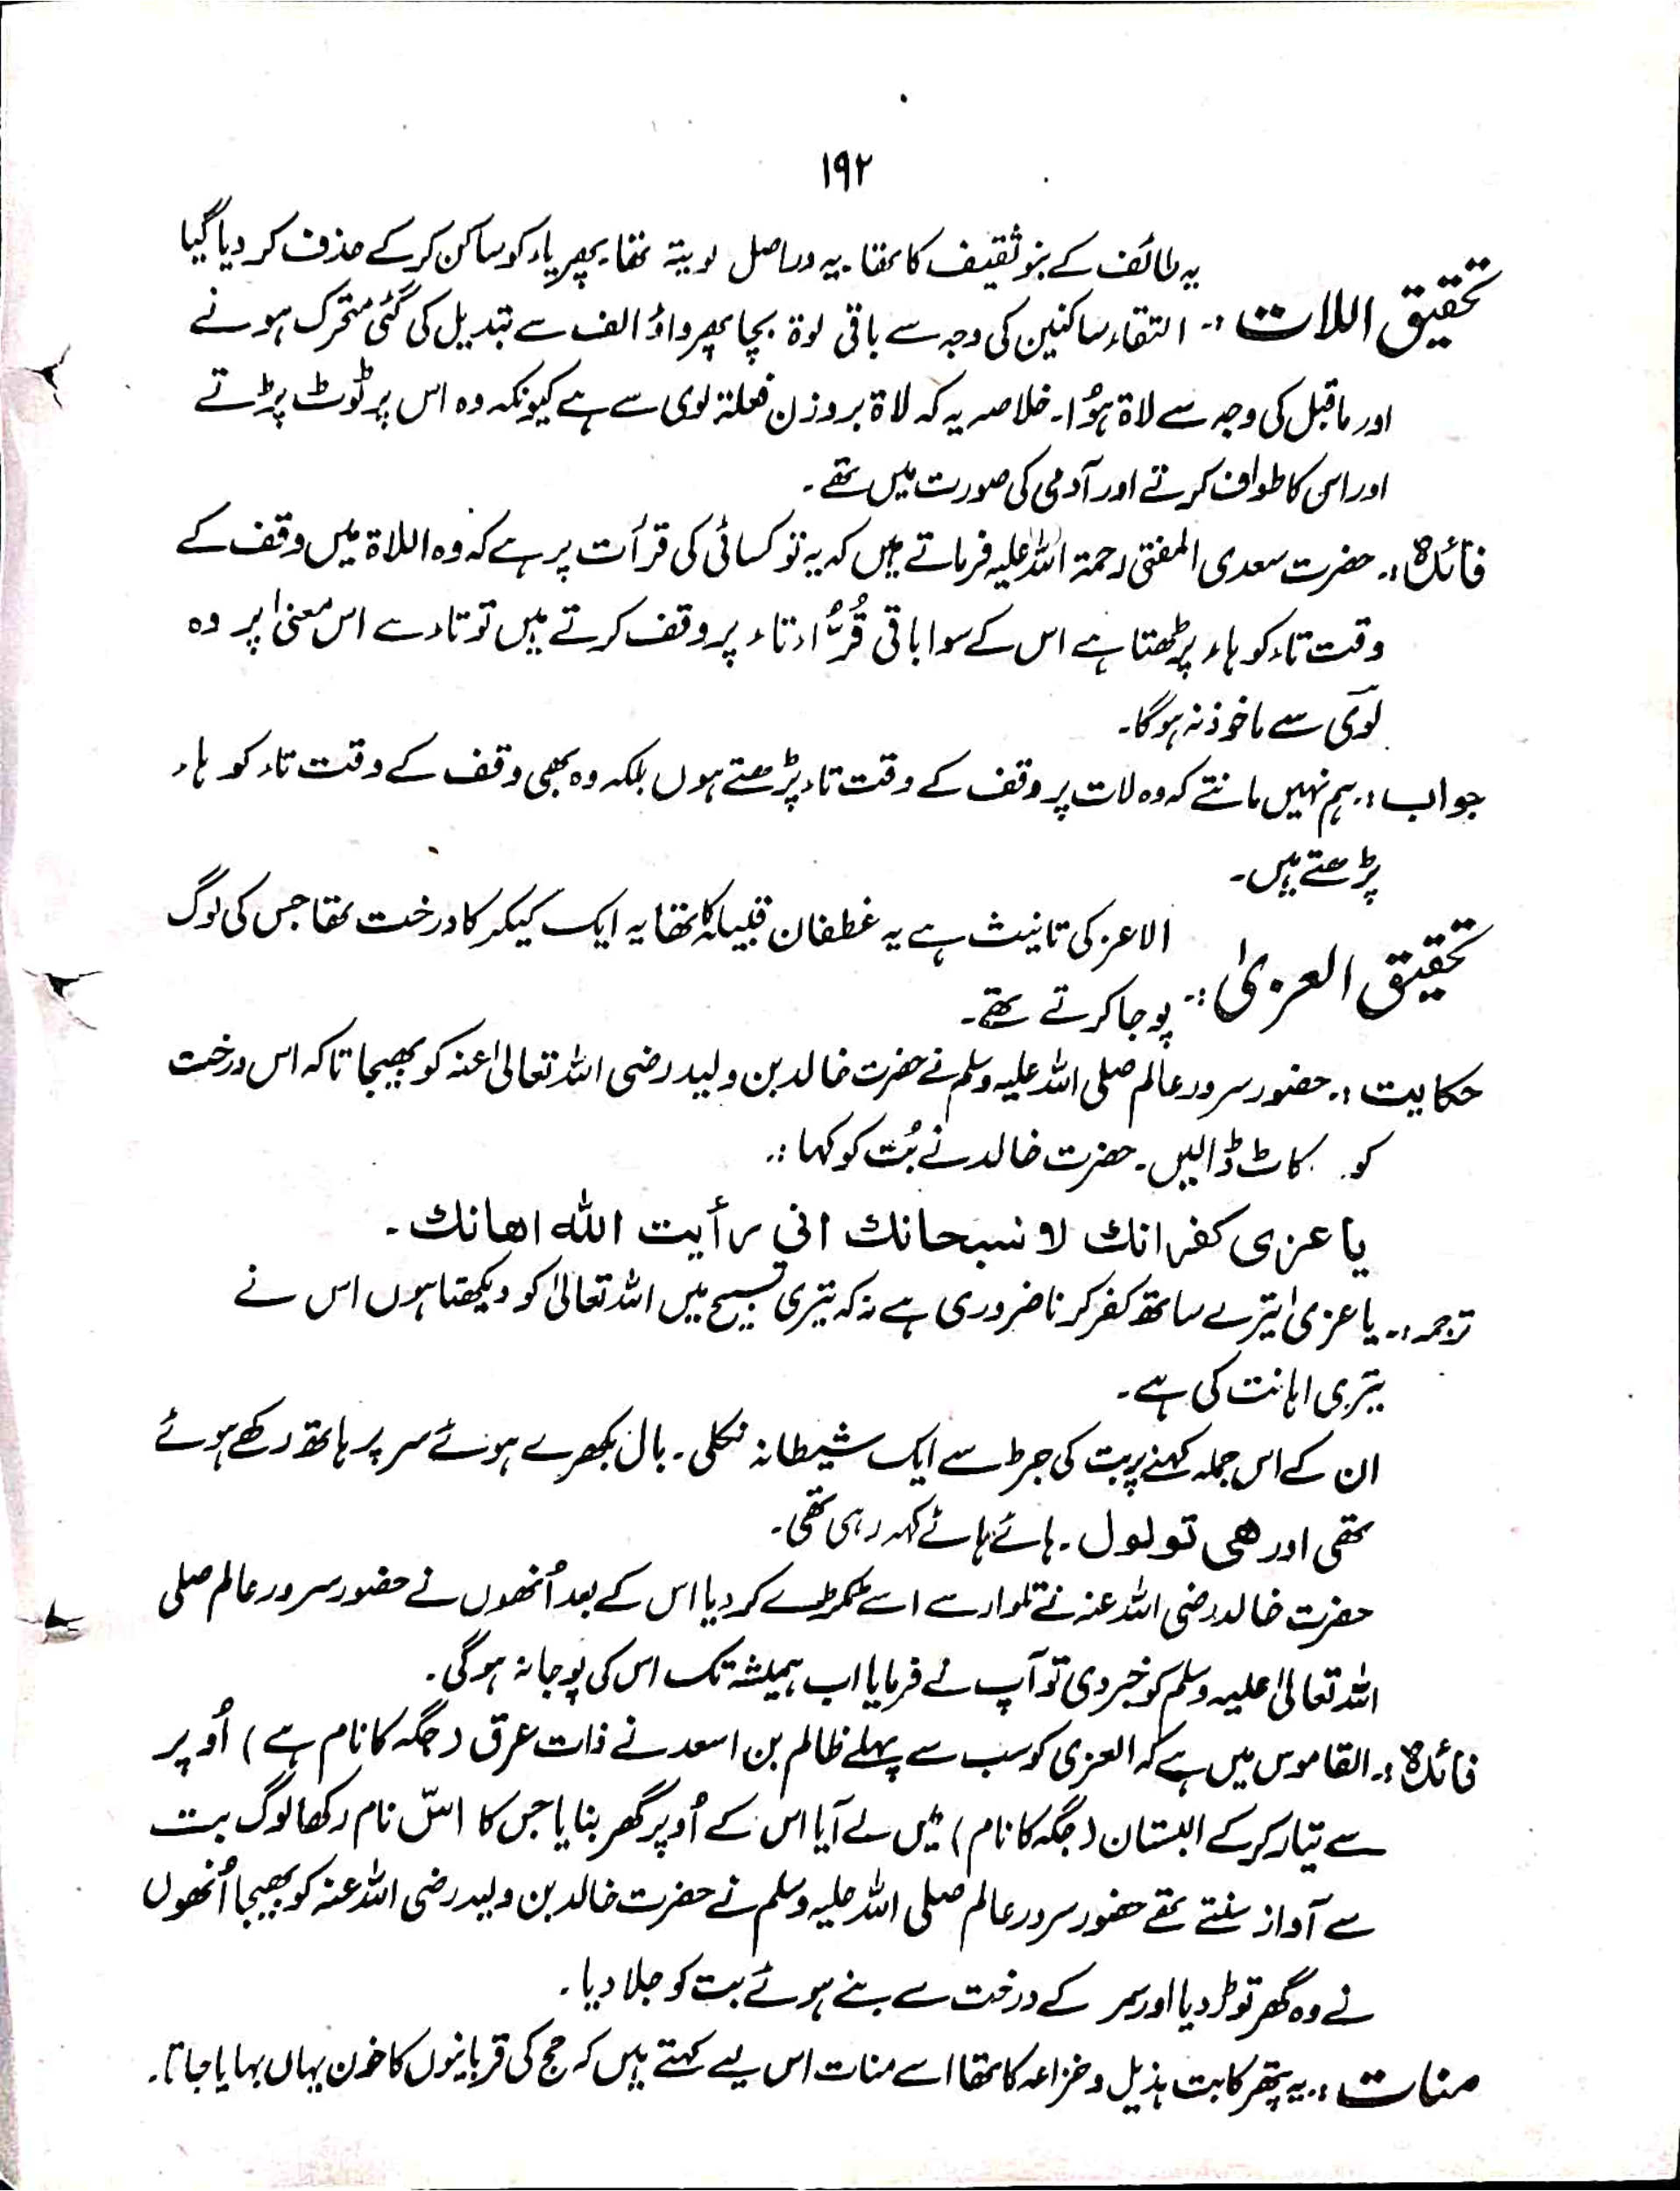 ۱۹۲
یہ طائف کے بنو ثقیف کا تھا۔ یہ دراصل لویۃ تھا۔ پھر یاء کو ساکن کر کے حذف کر دیا گیا
تحقیق اللات :۔ التقاء ساکنین کی وجہ سے باقی لوۃ بچا پھر واؤ الف سے تبدیل کی گئی متحرک ہونے
اور ماقبل کی وجہ سے لاۃ ہوُا۔ خلاصہ یہ کہ لاۃ بروزن فعلۃ لوی سے ہے کیونکہ وہ اس پر ٹوٹ پڑتے
اور اس کا طواف کرتے اور آدمی کی صورت میں تھے۔
فائدہ :۔ حضرت سعدی المفتی رحمۃ اللہ علیہ فرماتے ہیں کہ یہ تو کسائی کی قرأت پر ہے کہ وہ اللاۃ میں وقف کے
وقت تاء کو ہاء پڑھتا ہے اس کے سوا باقی قُرّاء تاء پر وقف کرتے ہیں تو تاء سے اس معنیٰ پر وہ
لَوَی سے ماخوذ نہ ہوگا۔
جواب :۔ ہم نہیں مانتے کہ وہ لات پر وقف کے وقت تاء پڑھتے ہوں بلکہ وہ بھی وقف کے وقت تاء کو ہاء
پڑھتے ہیں۔
الاعز کی تانیث ہے یہ غطفان قبیلہ کا تھا یہ ایک کیکر کا درخت تھا جس کی لوگ
تحقیق العزیٰ :۔ پوجا کرتے تھے۔
حکایت :۔ حضور سرور عالم صلی اللہ علیہ وسلم نے حضرت خالد بن ولید رضی اللہ تعالیٰ عنہ کو بھیجا تاکہ اس درخت
کو کاٹ ڈالیں۔ حضرت خالد نے بُت کو کہا :۔
یا عزی کفرانك لا سبحانك انی رأیت اللہ اھانك ۔
ترجمہ :۔ یا عزیٰ تیرے ساتھ کفر کرنا ضروری ہے نہ کہ تیری تسبیح میں اللہ تعالیٰ کو دیکھتا ہوں اس نے
تیری اہانت کی ہے۔
ان کے اس جملہ کہنے پر بت کی جڑ سے ایک شیطانہ نکلی۔ بال بکھرے ہوئے سر پر ہاتھ رکھے ہوئے
تھی اور ھی تولول۔ ہائے ہائے کہہ رہی تھی۔
حضرت خالد رضی اللہ عنہ نے تلوار سے اسے ٹکڑے کر دیا اس کے بعد اُنھوں نے حضور سرور عالم صلی
اللہ تعالیٰ علیہ وسلم کو خبر دی تو آپ نے فرمایا اب ہمیشہ تک اس کی پوجا نہ ہوگی۔
فائدہ :۔ القاموس میں ہے کہ العزی کو سب سے پہلے ظالم بن اسعد نے ذات عرق (جگہ کا نام ہے) اُوپر
سے تیار کر کے البستان (جگہ کا نام) میں لے آیا اس کے اُوپر گھر بنایا جس کا اسّ نام رکھا لوگ بت
سے آواز سنتے تھے حضور سرور عالم صلی اللہ علیہ وسلم نے حضرت خالد بن ولید رضی اللہ عنہ کو بھیجا اُنھوں
نے وہ گھر توڑ دیا اور سمر کے درخت سے بنے ہوئے بت کو جلا دیا۔
منات :۔ یہ پتھر کا بت ہذیل و خزاعہ کا تھا اسے منات اس لیے کہتے ہیں کہ حج کی قربانیوں کا خون یہاں بہایا جاتا۔